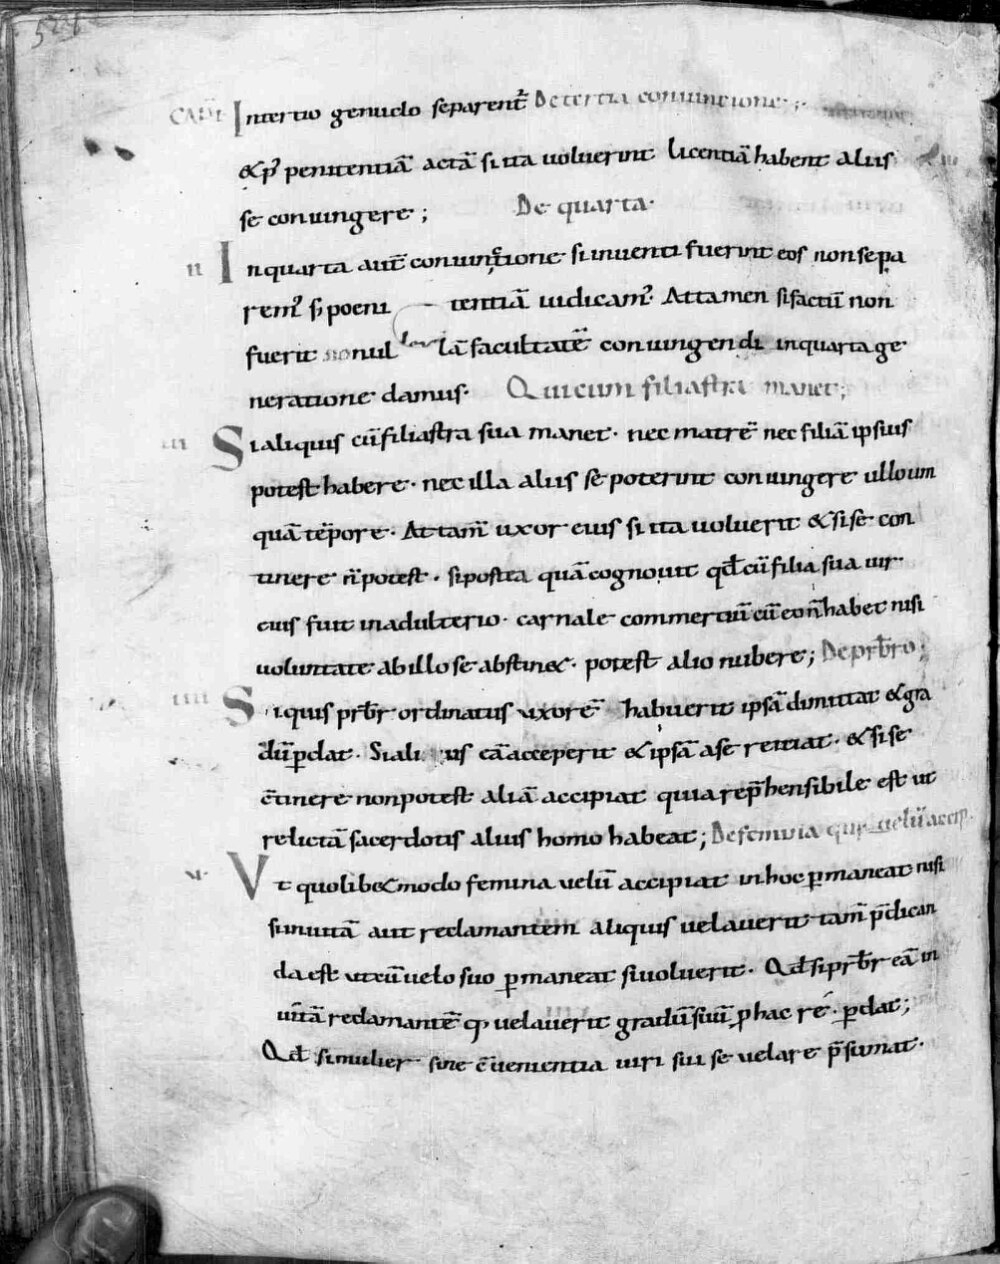 CAPI· In tertio genuclo separent̄ De tertia coniunctione;
& p̄ penitentiā actā si ita uoluerint licentiā habent aliis
se coniungere; De quarta·
II In quarta aut̄ coniunctione si inuenti fuerint eos non sepa
rem᾽ s; poeni tentiā iudicam᾽· Attamen si factū non
fuerit nonul lā facultatē coniungendi in quarta ge
neratione damus· Qui cum filiastra manet;
III Si aliquis cū filiastra sua manet· nec matrē nec filiā ipsius
potest habere· nec illa aliis se poterint coniungere ullo um
quā tēpore· Attam̄ uxor eius si ita uoluerit & si se con
tinere n̄ potest· si postea quā cognouit qđ cū filia sua uir
eius fuit in adulterio· carnale commertiū cū eo n̄ habet nisi
uoluntate ab illo se abstinet· potest alio nubere; De pr̄bro;
IIII Siquis pr̄br ordinatus uxorē habuerit ipsā dimittat & gra
dū ꝑdat· Si ali us eā acceperit & ipsā a se reiciat· & si se
c̄tinere non potest aliā accipiat quia rep̄hensibile est ut
relictā sacerdotis alius homo habeat; De femina que uelū accip·
V· Vt quolibet modo femina uelū accipiat in hoc ꝑmaneat nisi
si inuitā aut reclamantem aliquis uelauerit tam̄ p̄dican
da est ut cū uelo suo ꝑmaneat si uoluerit· Qđ si pr̄br eā in
uitā reclamantē q; uelauerit gradū suū ꝓ hac re· ꝑdat;
Qđ si mulier sine c̄uenientia uiri sui se uelare p̄sumat·